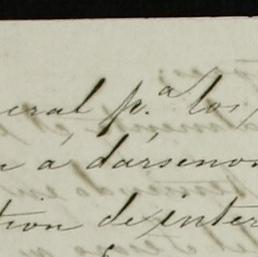 eral p.ª los
a á dársenos
tion de inter